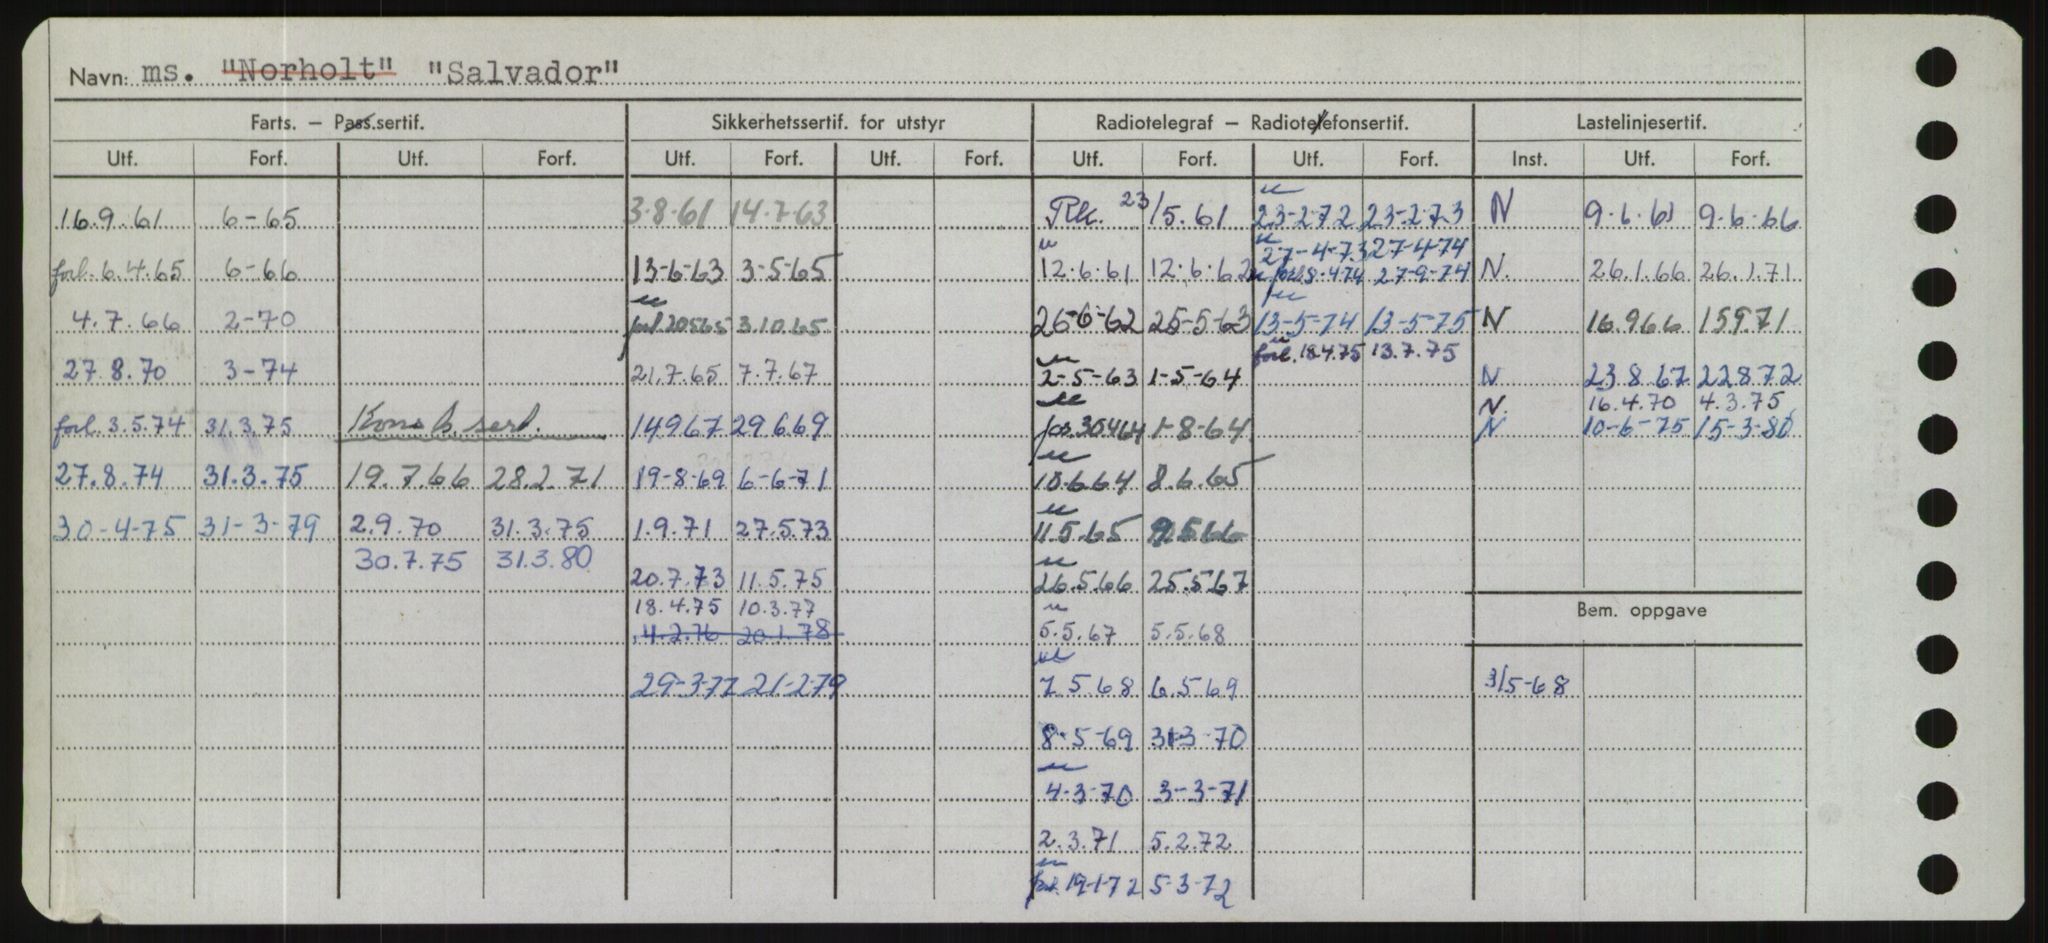 Navn: ms. "Norholt" "Salvador"
Farts. – Pass.sertif. Sikkerhetssertif. for utstyr Radiotelegraf – Radiotelefonsertif. Lastelinjesertif.
Utf. Forf. Utf. Forf. Utf. Forf. Utf. Forf. Utf. Forf. Utf. Forf. Inst. Utf. Forf.
16.9.61 6-65 3-8-61 14.7-63 Rk. 23/5.61 23-2-72 23-2-73 N 9.6.61 9.6.66
27-4-73 27-4-74
forl. 6.4.65 6-66 13-6-63 3-5-65 12.6.61 12.6.62 forl. 8-4-74 27-9-74 N. 26.1.66 26.1.71
4.7.66 2-70 forl. 20565 3.10.65 26-6-62 25-5-63 13-5-74 13-5-75 N 16.966 15971
forl. 18.4.75 13.7.75
27.8.70 3-74 21.7.65 7.7.67 2-5-63 1-5-64 N 23.8.67 22872
N. 16.4.70 4.3.75
forl. 3.5.74 31.3.75 14967 29669 30464 1-8-64 N 10-6-75 15-3-80
27.8.74 31.3.75 19.7.66 28.2.71 19-8-69 6-6-71 10.6.64 8.6.65
30-4-75 31-3-79 2.9.70 31.3.75 1.9.71 27.5.73 11.5.65
30.7.75 31.3.80
20.7.73 11.5.75 26.5.66 25.5.67
18.4.75 10.3.77 Bem. oppgave
4.2.76 20.1.78 5.5.67 5.5.68
29-3-77 21-2-79 7.5.68 6.5.69 3/5-68
8-5-69 31-3-70
4-3-70 3-3-71
2.3.71 5.2.72
19-1-72 5-3-72